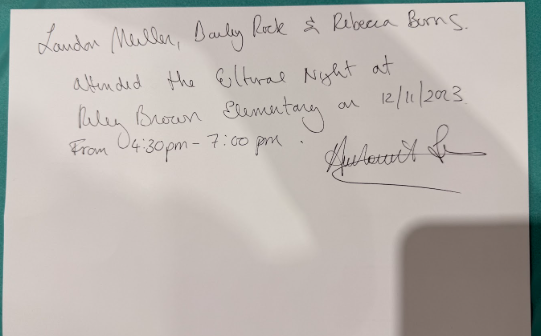 Landon Muller, Baily Rock & Rebecca Burns.
attended the Cultural Night at
Riley Brown Elementary on 12/11/2023
From 4:30pm - 7:00 pm.